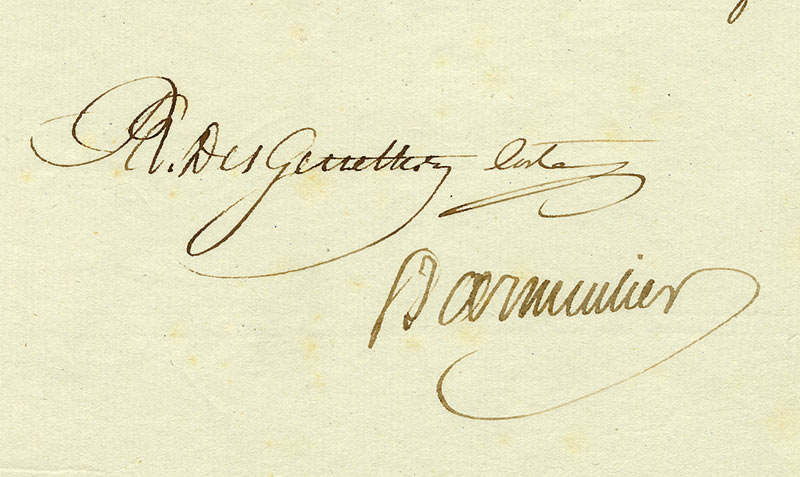 R. DesGenettes Coste
Parmentier